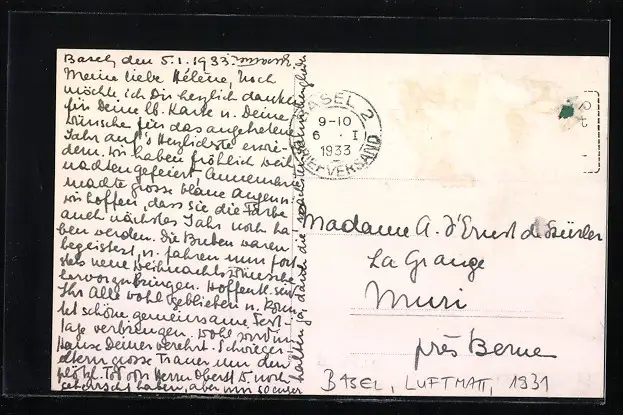 Basel, den 5.1.1933.
Meine liebe Hélène, Noch
möchte ich Dir herzlich danken
für Deine lb. Karte u. Deine
Wünsche für das angetretene
Jahr auf's Herzlichste erwie-
dern. Wir haben fröhlich Weih
nachten gefeiert, Annemarie
machte grosse blaue Augen u.
wir hoffen, dass sie die Farbe
auch nächstes Jahr noch ha-
ben werden. Die Buben waren
begeistert, u. fahren nun fort
stets neue Weihnachtswünsche
hervorzubringen. Hoffentl. seid
Ihr Alle wohl geblieben u. konn
tet schöne gemeinsame Fest-
tage verbringen. Wohl wird im
Hause Deiner verehrt. Schwieger-
eltern grosse Trauer um den
plötzl. Tod von Herrn Oberst D. noch
geherrscht haben, aber um so
BASEL 2
9-10
6 · I
1933
BRIEFVERSAND
Madame A. d'Ernst de Steürler
La Grange
Muri
près Berne
BASEL, LUFTMATT, 1931